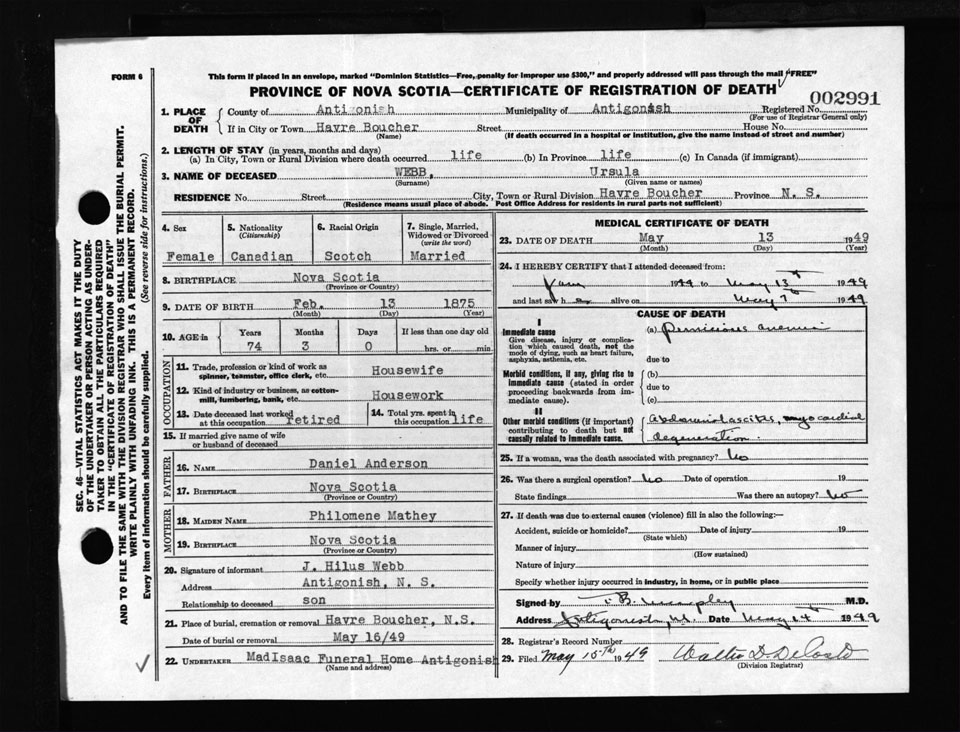 FORM 6
This form if placed in an envelope, marked "Dominion Statistics—Free, penalty for improper use $300," and properly addressed will pass through the mail "FREE"
PROVINCE OF NOVA SCOTIA—CERTIFICATE OF REGISTRATION OF DEATH
002991
1. PLACE OF DEATH
County of Antigonish Municipality of Antigonish Registered No.
(For use of Registrar General only)
If in City or Town Havre Boucher Street House No.
(Name) (If death occurred in a hospital or institution, give the name instead of street and number)
2. LENGTH OF STAY (in years, months and days)
(a) In City, Town or Rural Division where death occurred life (b) In Province life (c) In Canada (if immigrant)
3. NAME OF DECEASED WEBB, Ursula
(Surname) (Given name or names)
RESIDENCE No. Street City, Town or Rural Division Havre Boucher Province N. S.
(Residence means usual place of abode. Post Office Address for residents in rural parts not sufficient)
4. Sex 5. Nationality (Citizenship) 6. Racial Origin 7. Single, Married, Widowed or Divorced (write the word)
Female Canadian Scotch Married
8. BIRTHPLACE Nova Scotia
(Province or Country)
9. DATE OF BIRTH Feb. 13 1875
(Month) (Day) (Year)
10. AGE in Years Months Days If less than one day old
74 3 0 hrs. or min.
OCCUPATION
11. Trade, profession or kind of work as spinner, teamster, office clerk, etc. Housewife
12. Kind of industry or business, as cotton-mill, lumbering, bank, etc. Housework
13. Date deceased last worked at this occupation retired 14. Total yrs. spent in this occupation life
15. If married give name of wife or husband of deceased
FATHER
16. NAME Daniel Anderson
17. BIRTHPLACE Nova Scotia
(Province or Country)
MOTHER
18. MAIDEN NAME Philomene Mathey
19. BIRTHPLACE Nova Scotia
(Province or Country)
20. Signature of informant J. Hilus Webb
Address Antigonish, N. S.
Relationship to deceased son
21. Place of burial, cremation or removal Havre Boucher, N.S.
Date of burial or removal May 16/49
22. UNDERTAKER MadIsaac Funeral Home Antigonish
(Name and address)
MEDICAL CERTIFICATE OF DEATH
23. DATE OF DEATH May 13 1949
(Month) (Day) (Year)
24. I HEREBY CERTIFY that I attended deceased from:
19 to May 13th 1949
and last saw h alive on May 7th 1949
CAUSE OF DEATH
I
Immediate cause
Give disease, injury or complication which caused death, not the mode of dying, such as heart failure, asphyxia, asthenia, etc.
(a) Pernicious anemia
due to
Morbid conditions, if any, giving rise to immediate cause (stated in order proceeding backwards from immediate cause)
(b)
due to
(c)
II
Other morbid conditions (if important) contributing to death but not causally related to immediate cause.
Abdominal ascites, myocardial
degeneration.
25. If a woman, was the death associated with pregnancy? No
26. Was there a surgical operation? No Date of operation 19
State findings Was there an autopsy? No
27. If death was due to external causes (violence) fill in also the following:—
Accident, suicide or homicide? Date of injury 19
(State which)
Manner of injury
(How sustained)
Nature of injury
Specify whether injury occurred in industry, in home, or in public place
Signed by M.D.
Address Antigonish, Date May 14th 1949
28. Registrar's Record Number
29. Filed May 15TH 1949 Walter D. DeCoste
(Division Registrar)
SEC. 46—VITAL STATISTICS ACT MAKES IT THE DUTY
OF THE UNDERTAKER OR PERSON ACTING AS UNDER-
TAKER TO OBTAIN ALL THE PARTICULARS REQUIRED
IN THE "CERTIFICATE OF REGISTRATION OF DEATH"
AND TO FILE THE SAME WITH THE DIVISION REGISTRAR WHO SHALL ISSUE THE BURIAL PERMIT.
WRITE PLAINLY WITH UNFADING INK. THIS IS A PERMANENT RECORD.
Every item of information should be carefully supplied. (See reverse side for instructions.)